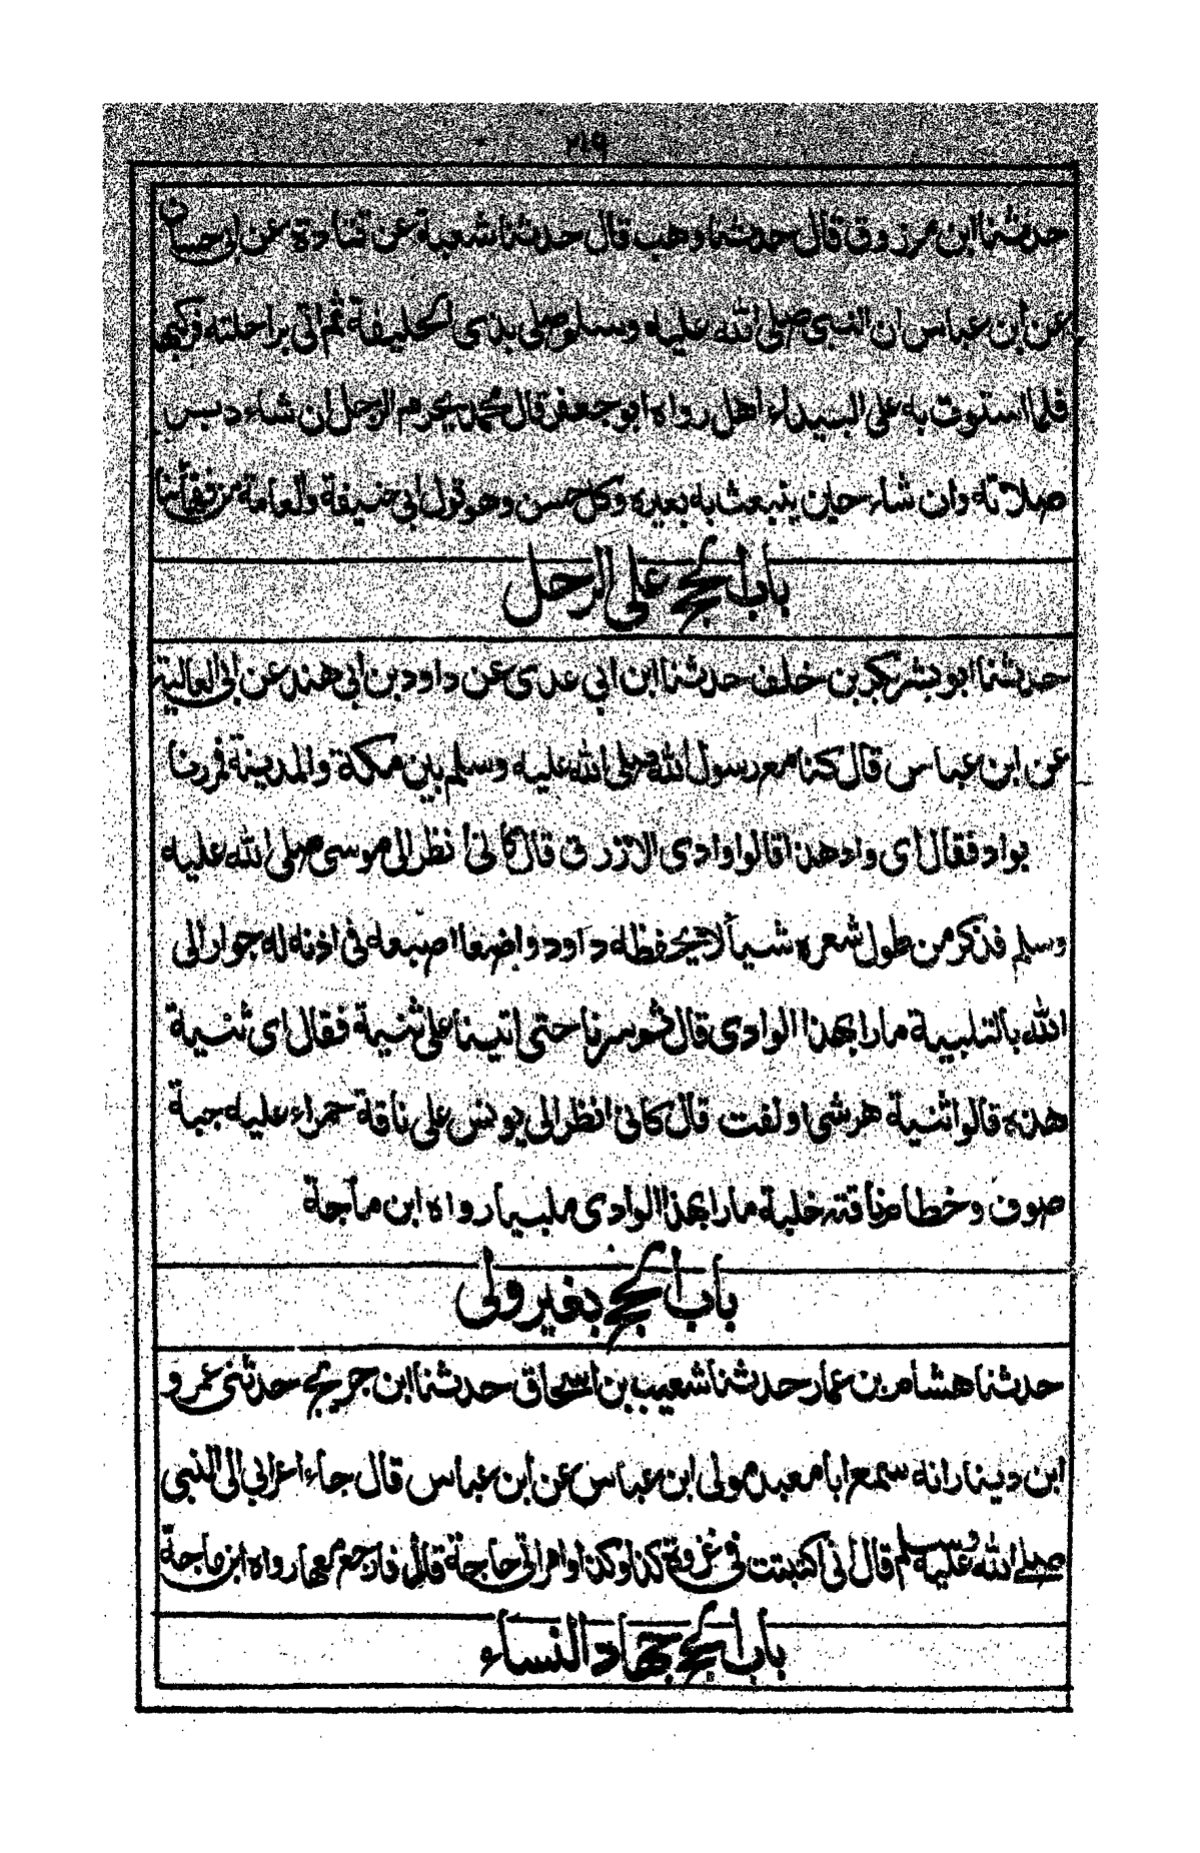 ٢١٩
حدثنا ابن مرزوق قال حدثنا وهب قال حدثنا شعبة عن قتادة عن ابى حسان
عن ابن عباس ان النبى صلى الله عليه وسلم صلى بذى الحليفة ثم اتى براحلته فركبها
فلما استوت به على البيداء اهل رواه ابو جعفر قال محمد يحرم الرجل ان شاء دبر
صلاته وان شاء حين ينبعث به بعيره وكل حسن وهو قول ابى حنيفة والعامة من فقهائنا
باب الحج على الرحل
حدثنا ابو بشر بكر بن خلف حدثنا ابن ابي عدى عن داود بن ابي هند عن ابى العالية
عن ابن عباس قال كنا مع رسول الله صلى الله عليه وسلم بين مكة والمدينة فمررنا
بواد فقال اى واد هذا قالوا وادى الازرق قال كانى انظر الى موسى صلى الله عليه
وسلم فذكر من طول شعره شيأ لا يحفظه داود واضعا اصبعه فى اذنه له جوار الى
الله بالتلبية مارا بهذا الوادى قال ثم سرنا حتى اتينا على ثنية فقال اى ثنية
هذه قالوا ثنية هرشى او لفت قال كانى انظر الى يونس على ناقة حمراء عليه جبة
صوف وخطام ناقته خلبة مارا بهذا الوادى ملبيا رواه ابن ماجة
باب الحج بغير ولى
حدثنا هشام بن عمار حدثنا شعيب بن اسحاق حدثنا ابن جريج حدثنى عمرو
ابن دينار انه سمع ابا معبد مولى ابن عباس عن ابن عباس قال جاء اعرابي الى النبى
صلى الله عليه وسلم قال انى اكتبتت فى غزوة كذا وكذا وامراتى حاجة قال فارجع معها رواه ابن ماجة
باب الحج جهاد النساء